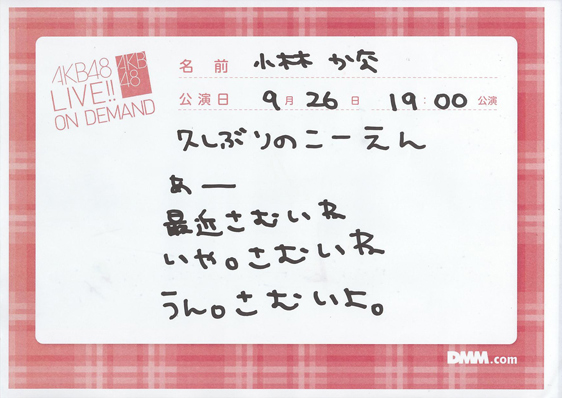 AKB48
LIVE!!
ON DEMAND
AKB
48
名前 小林 か灸
公演日 9月26日 19:00公演
久しぶりのこーえん
あー
最近さむいね
いや。さむいね
うん。さむいよ。
DMM.com